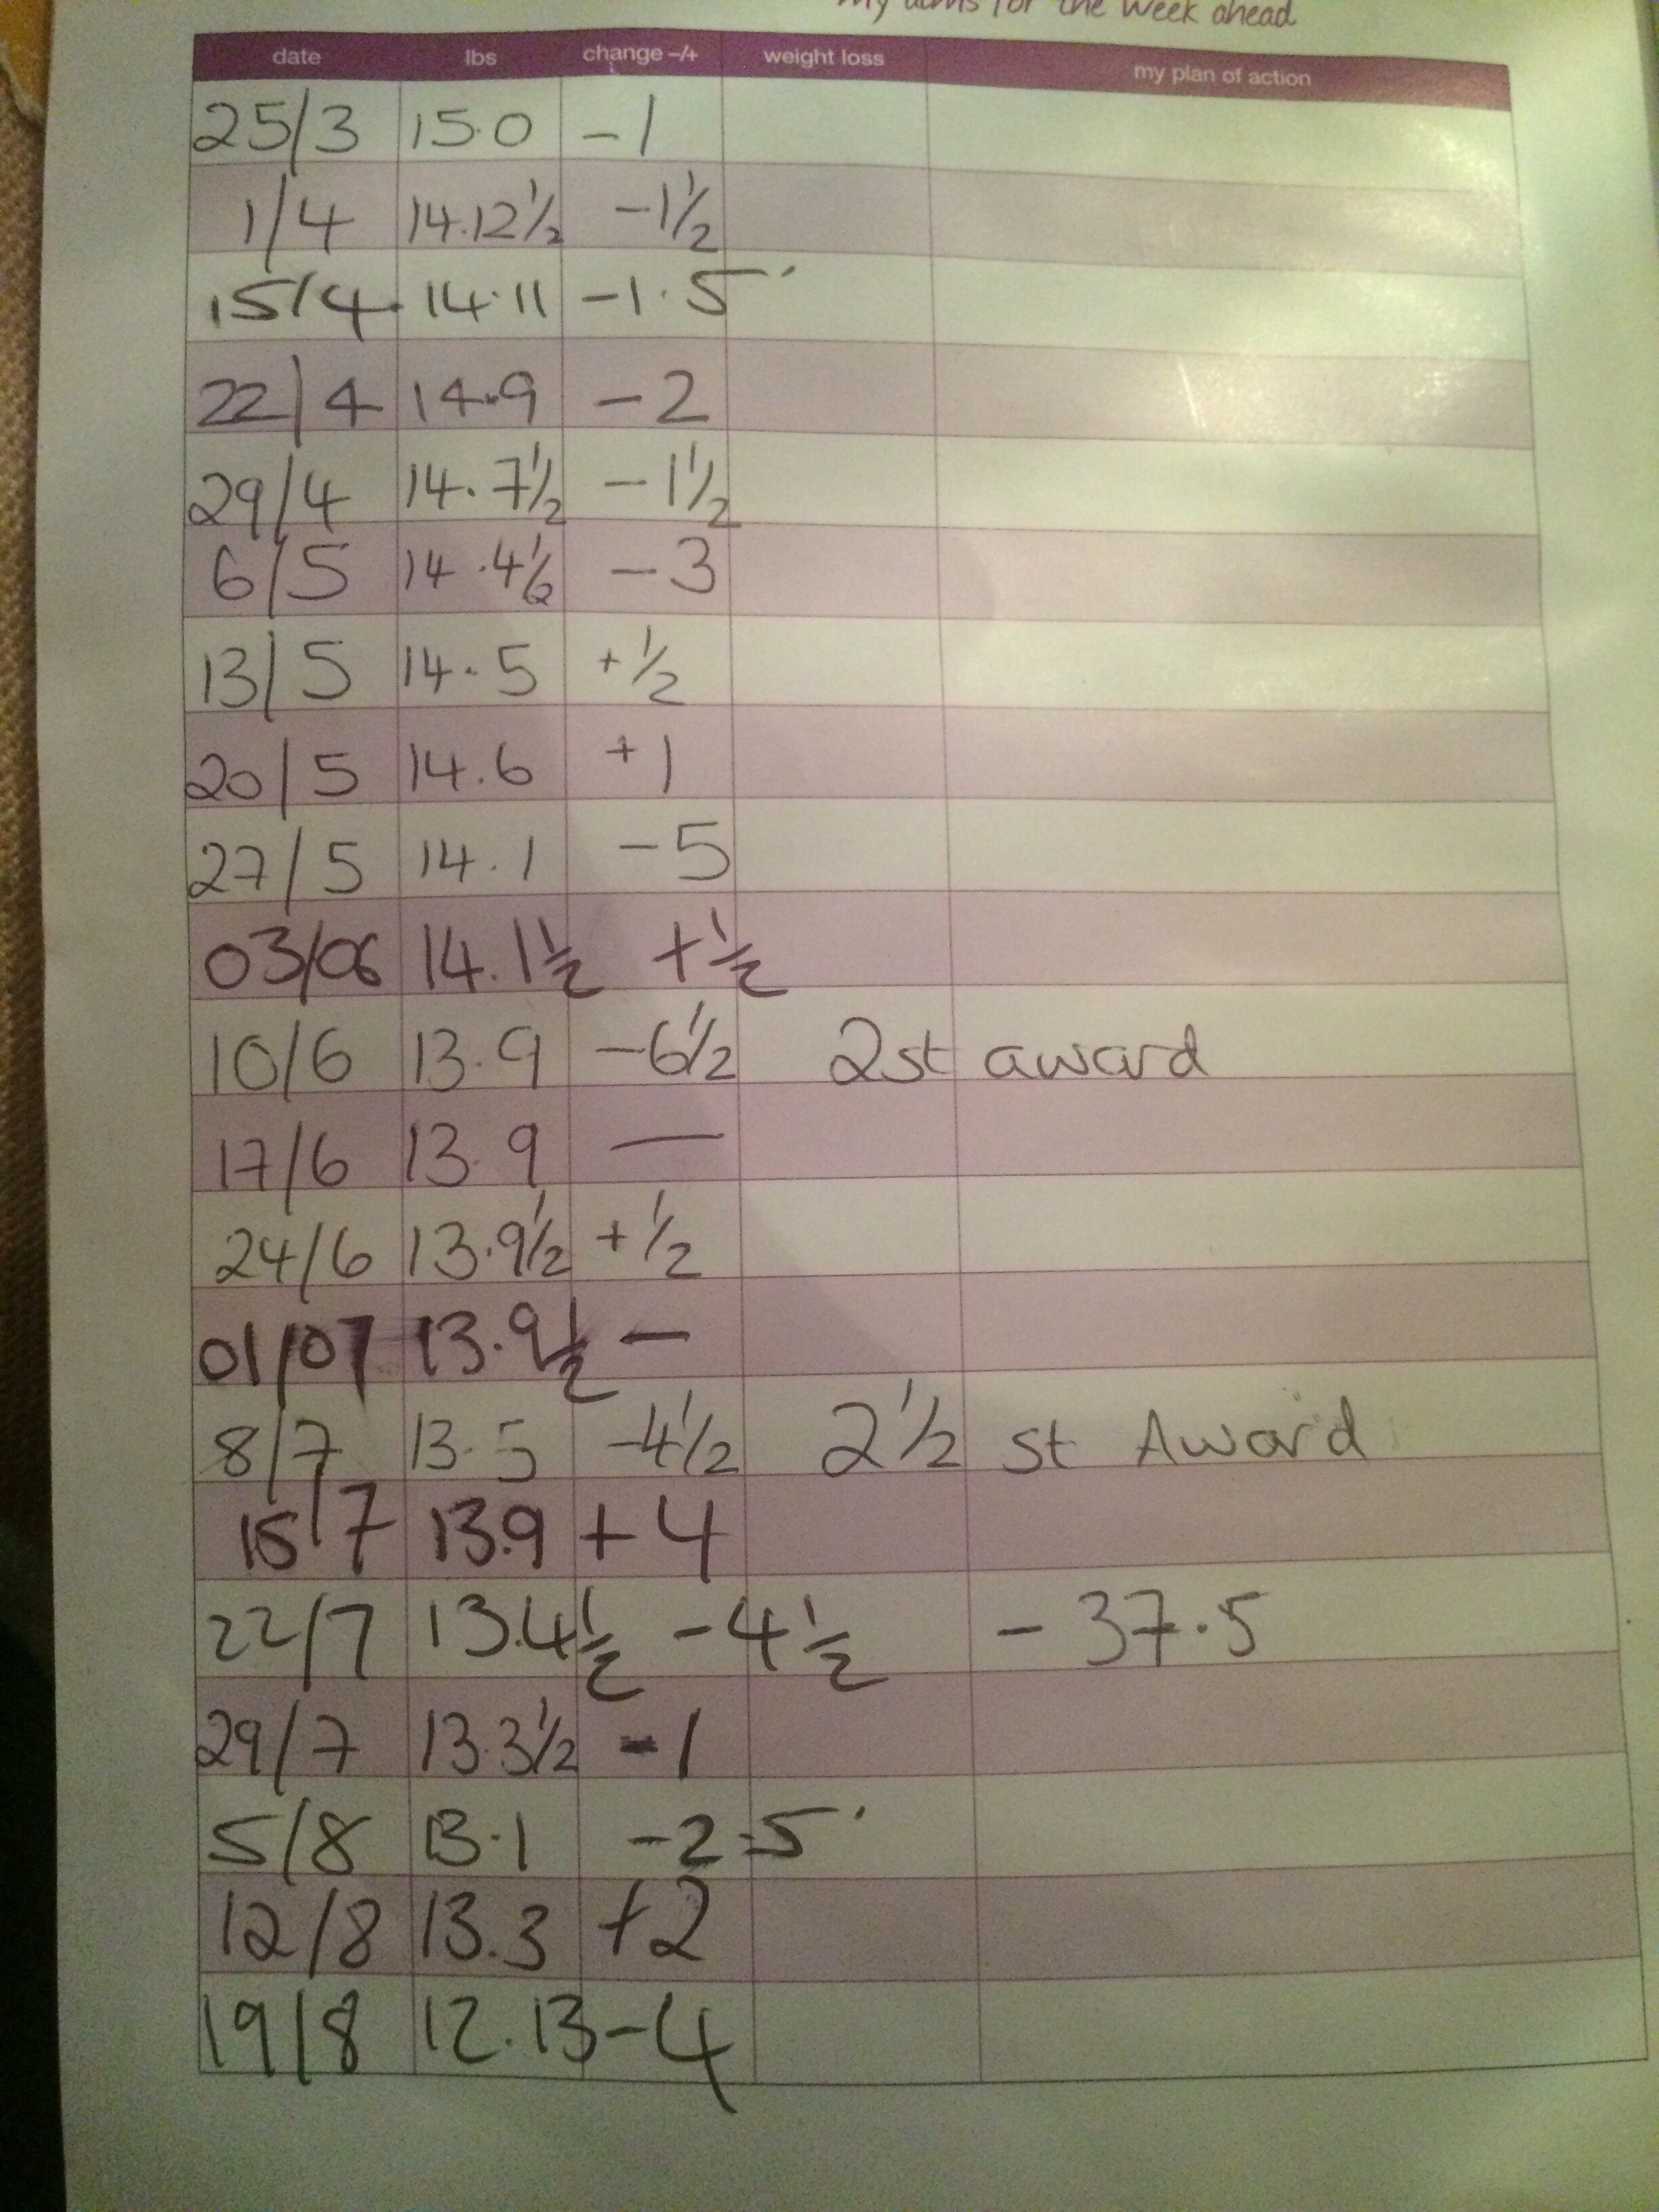 my aims for the week ahead
date lbs change -/+ weight loss my plan of action
25/3 15.0 -1
1/4 14.12½ -1½
15/4 14.11 -1.5
22/4 14.9 -2
29/4 14.7½ -1½
6/5 14.4½ -3
13/5 14.5 +½
20/5 14.6 +1
27/5 14.1 -5
03/06 14.1½ +½
10/6 13.9 -6½ 2st award
17/6 13.9 —
24/6 13.9½ +½
01/07 13.9½ —
8/7 13.5 -4½ 2½ st Award
15/7 13.9 +4
22/7 13.4½ -4½ -37.5
29/7 13.3½ -1
5/8 13.1 -2.5
12/8 13.3 +2
19/8 12.13 -4